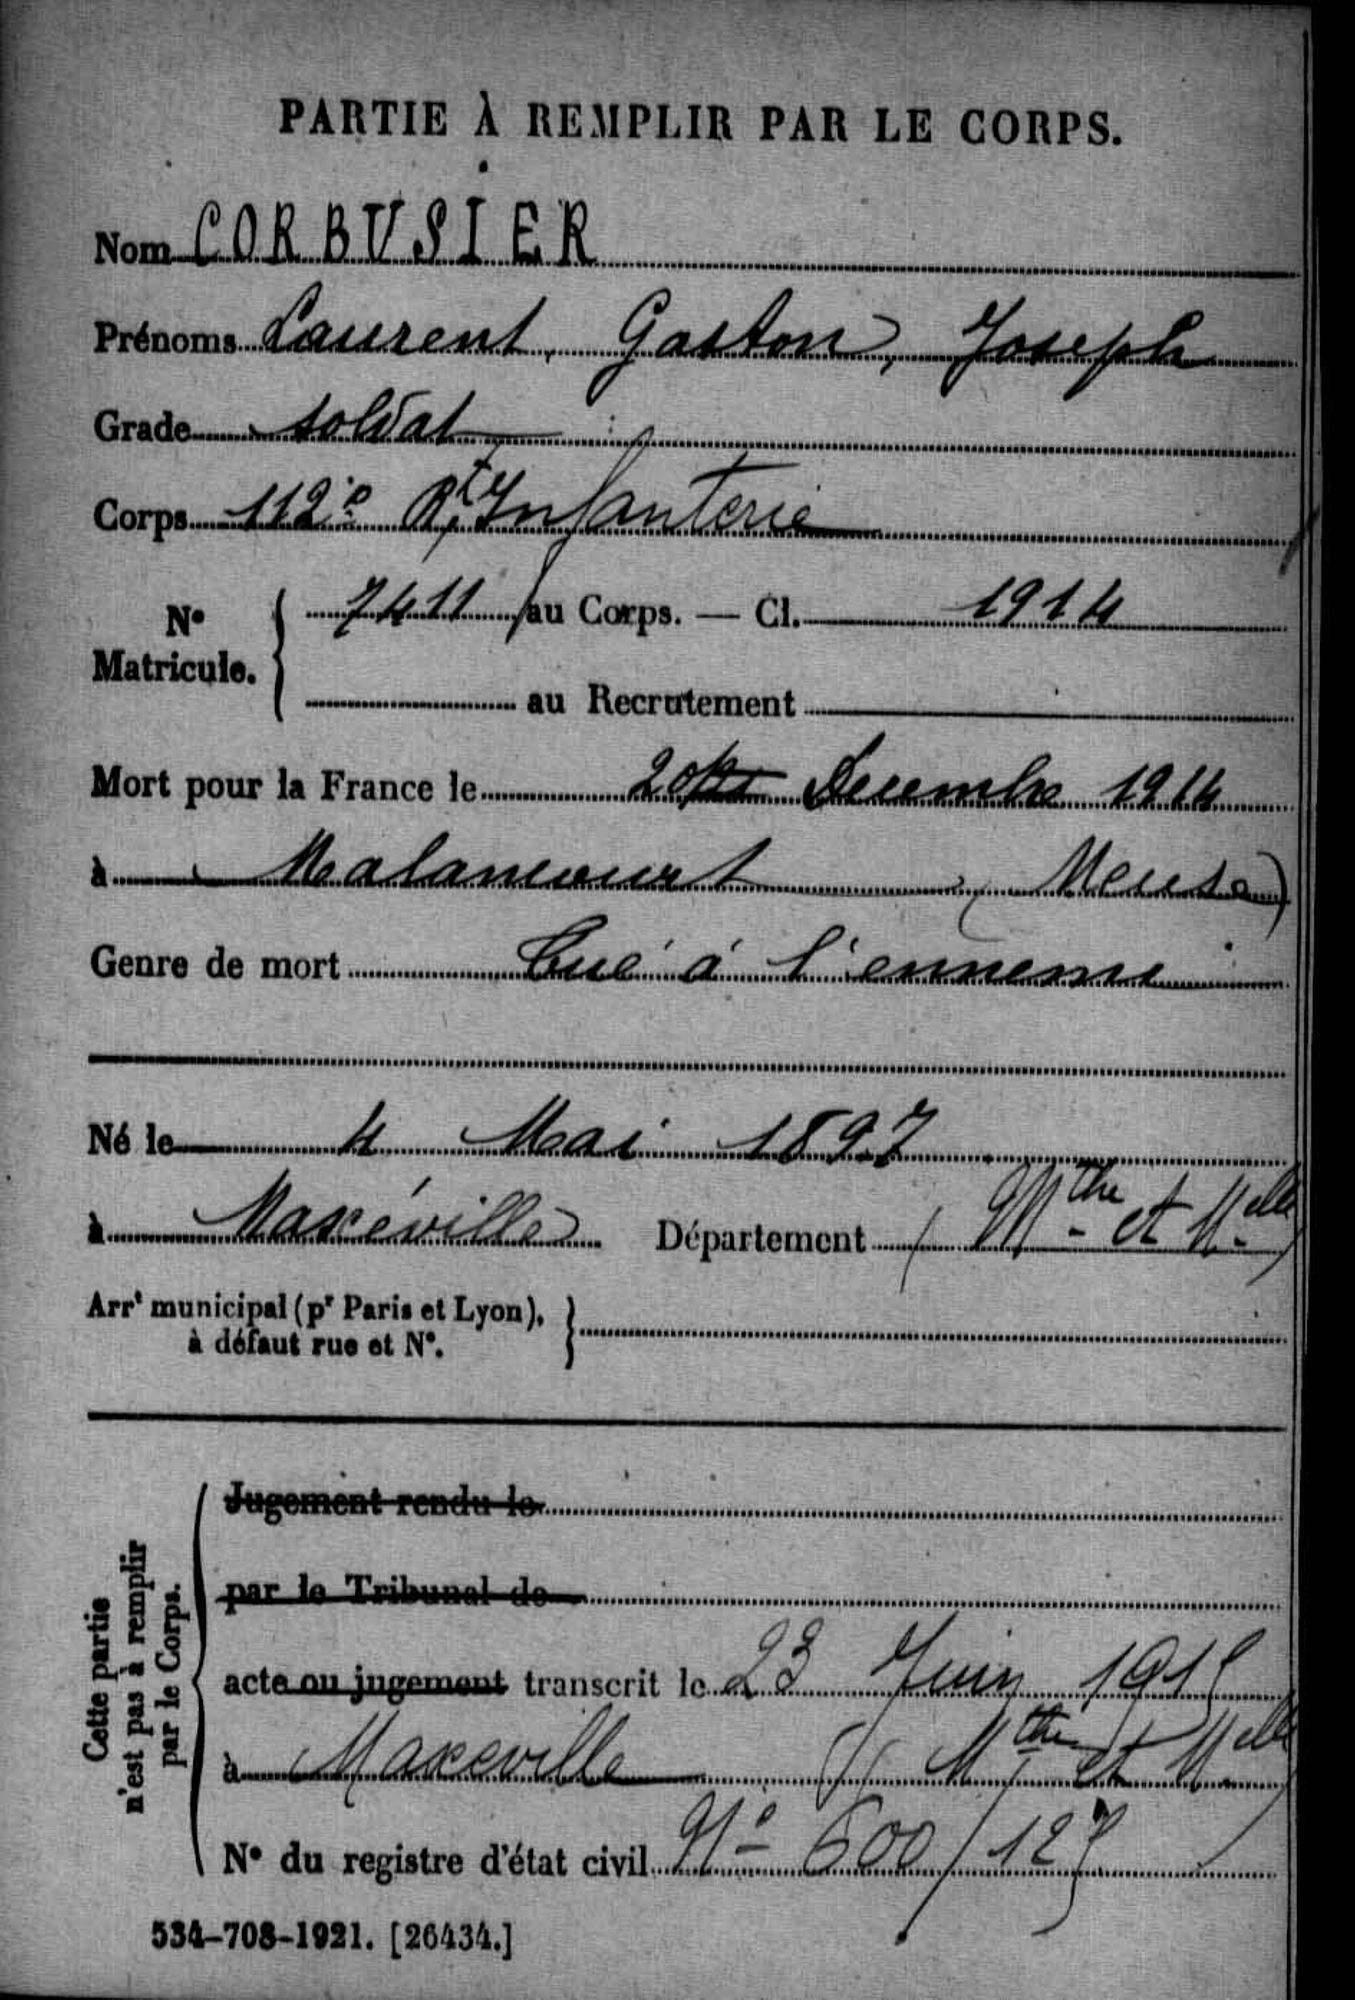 PARTIE À REMPLIR PAR LE CORPS.
Nom CORBUSIER
Prénoms Laurent, Gaston, Joseph
Grade soldat
Corps 112e Rt Infanterie
No
Matricule.
7411 au Corps. — Cl. 1914
au Recrutement
Mort pour la France le 20 Decembre 1914
à Malancourt (Meuse)
Genre de mort Tué à l'ennemi
Né le 4 Mai 1897
à Maxéville Département (Mthe et Melle)
Arrt municipal (pr Paris et Lyon),
à défaut rue et No.
Cette partie
n'est pas à remplir
par le Corps.
Jugement rendu le
par le Tribunal de
acte ou jugement transcrit le 23 Juin 1915
à Maxeville (Mthe et Melle)
No du registre d'état civil No 600/127
534-708-1921. [26434.]